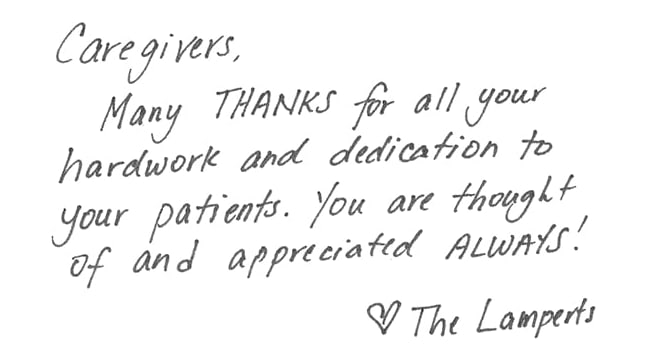 Caregivers,
Many THANKS for all your
hardwork and dedication to
your patients. You are thought
of and appreciated ALWAYS!
♡ The Lamperts